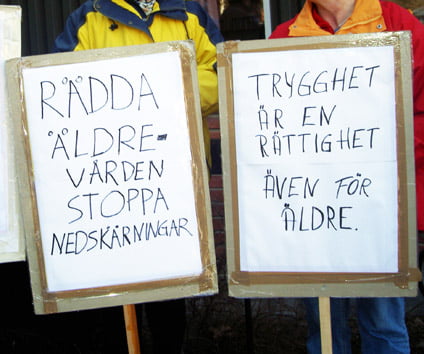 RÄDDA
ÄLDRE-
VÅRDEN
STOPPA
NEDSKÄRNINGAR
TRYGGHET
ÄR EN
RÄTTIGHET
ÄVEN FÖR
ÄLDRE.